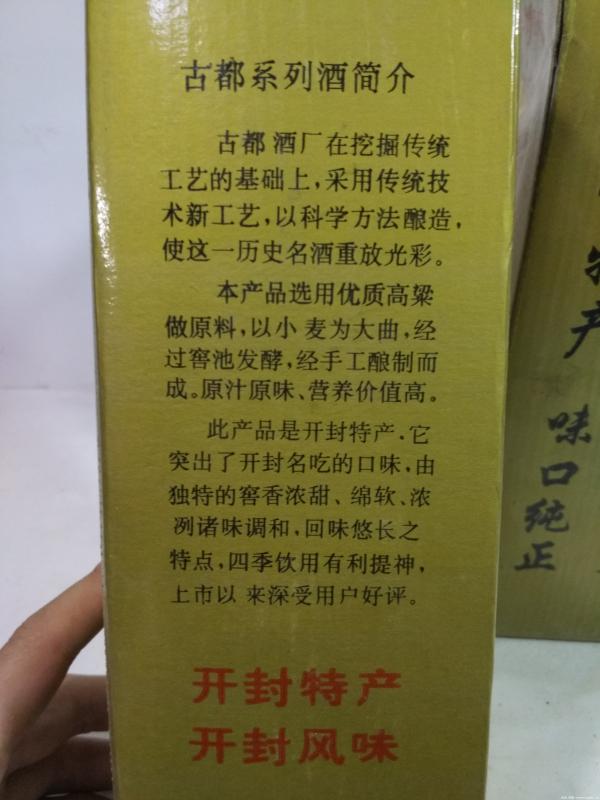 古都系列酒简介
古都酒厂在挖掘传统
工艺的基础上,采用传统技
术新工艺,以科学方法酿造,
使这一历史名酒重放光彩。
本产品选用优质高粱
做原料,以小麦为大曲,经
过窖池发酵,经手工酿制而
成。原汁原味、营养价值高。
此产品是开封特产.它
突出了开封名吃的口味,由
独特的窖香浓甜、绵软、浓
冽诸味调和,回味悠长之
特点,四季饮用有利提神,
上市以来深受用户好评。
开封特产
开封风味
产
味
口
纯
正